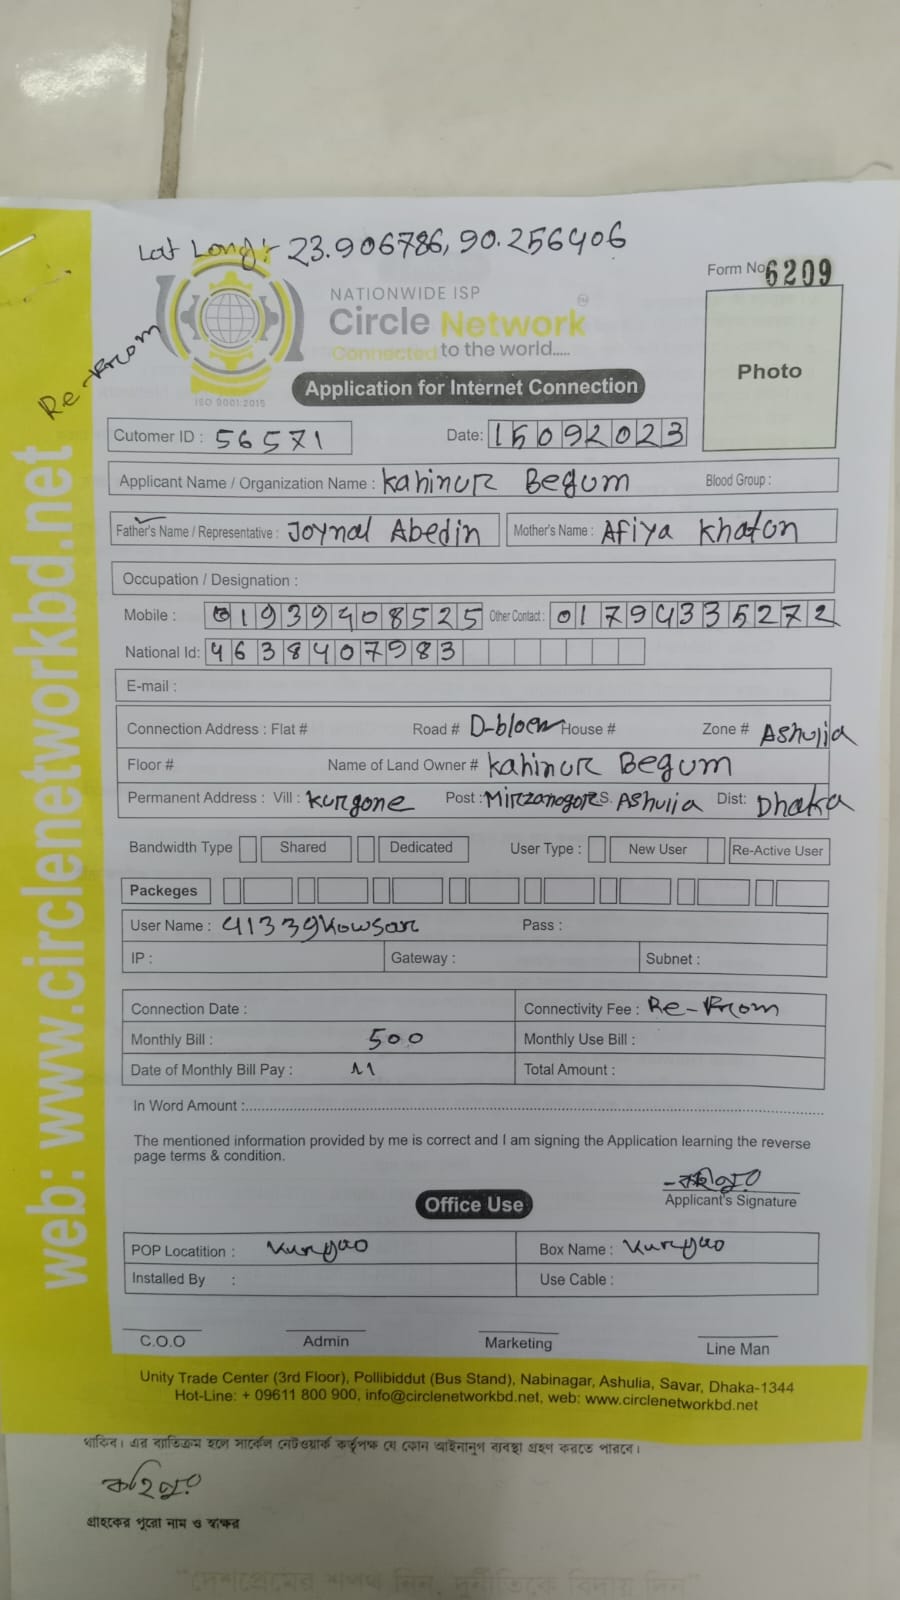 Lat Long:- 23.906786, 90.256406
Form No 6209
NATIONWIDE ISP
Circle Network
Connected to the world.....
ISO 9001:2015
Re-From
Application for Internet Connection
Photo
Cutomer ID : 56571 Date: 15092023
Applicant Name / Organization Name : Kahinur Begum Blood Group :
Father's Name / Representative : Joynal Abedin Mother's Name : Afiya Khaton
Occupation / Designation :
Mobile : 01939408525 Other Contact : 01794335272
National Id: 4638407983
E-mail :
Connection Address : Flat # Road # D-bloem House # Zone # Ashulia
Floor # Name of Land Owner # Kahinur Begum
Permanent Address : Vill : Kurgone Post : Mirzanogor P.S. Ashulia Dist: Dhaka
Bandwidth Type Shared Dedicated User Type : New User Re-Active User
Packeges
User Name : 41339Kowsar Pass :
IP : Gateway : Subnet :
Connection Date : Connectivity Fee : Re-From
Monthly Bill : 500 Monthly Use Bill :
Date of Monthly Bill Pay : 11 Total Amount :
In Word Amount :
The mentioned information provided by me is correct and I am signing the Application learning the reverse
page terms & condition.
Applicant's Signature
Office Use
POP Locatition : Kurgao Box Name : Kurgao
Installed By : Use Cable :
C.O.O Admin Marketing Line Man
Unity Trade Center (3rd Floor), Pollibiddut (Bus Stand), Nabinagar, Ashulia, Savar, Dhaka-1344
Hot-Line: + 09611 800 900, info@circlenetworkbd.net, web: www.circlenetworkbd.net
web: www.circlenetworkbd.net
থাকিব। এর ব্যতিক্রম হলে সার্কেল নেটওয়ার্ক কর্তৃপক্ষ যে কোন আইনানুগ ব্যবস্থা গ্রহণ করতে পারবে।
কাহিনুর
গ্রাহকের পুরো নাম ও স্বাক্ষর
"দেশপ্রেমের শপথ নিন, দুর্নীতিকে বিদায় দিন"